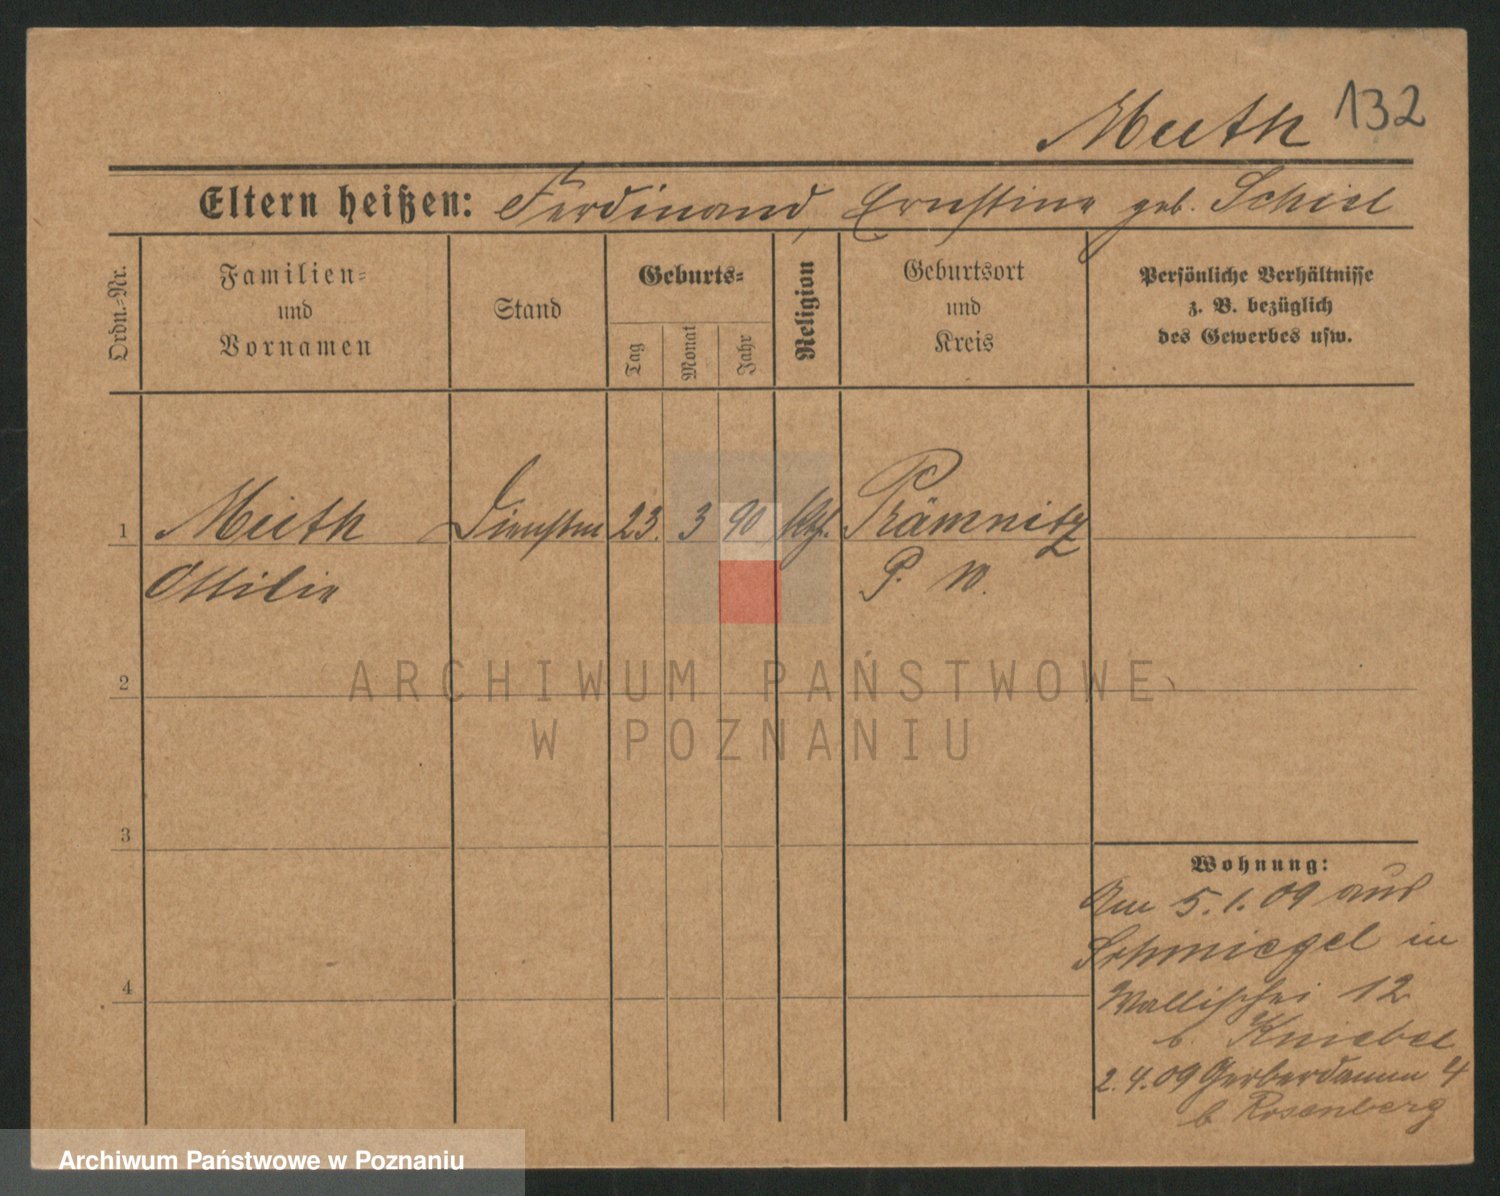 Mueth 132
Eltern heißen: Ferdinand, Ernstine geb. Schisl
Ordn.-Nr.
Familien-
und
Vornamen
Stand
Geburts-
Tag
Monat
Jahr
Religion
Geburtsort
und
Kreis
Persönliche Verhältnisse
z. B. bezüglich
des Gewerbes usw.
1 Mueth 23. 3 90 Prämnitz
Ottilie P. W.
2
3
4
Wohnung:
Am 5.1.09 aus
Schmiegel in
Wallischei 12
b. Kniebel
2.4.09 Gerberdamm 4
b Rosenberg
ARCHIWUM PAŃSTWOWE
W POZNANIU
Archiwum Państwowe w Poznaniu